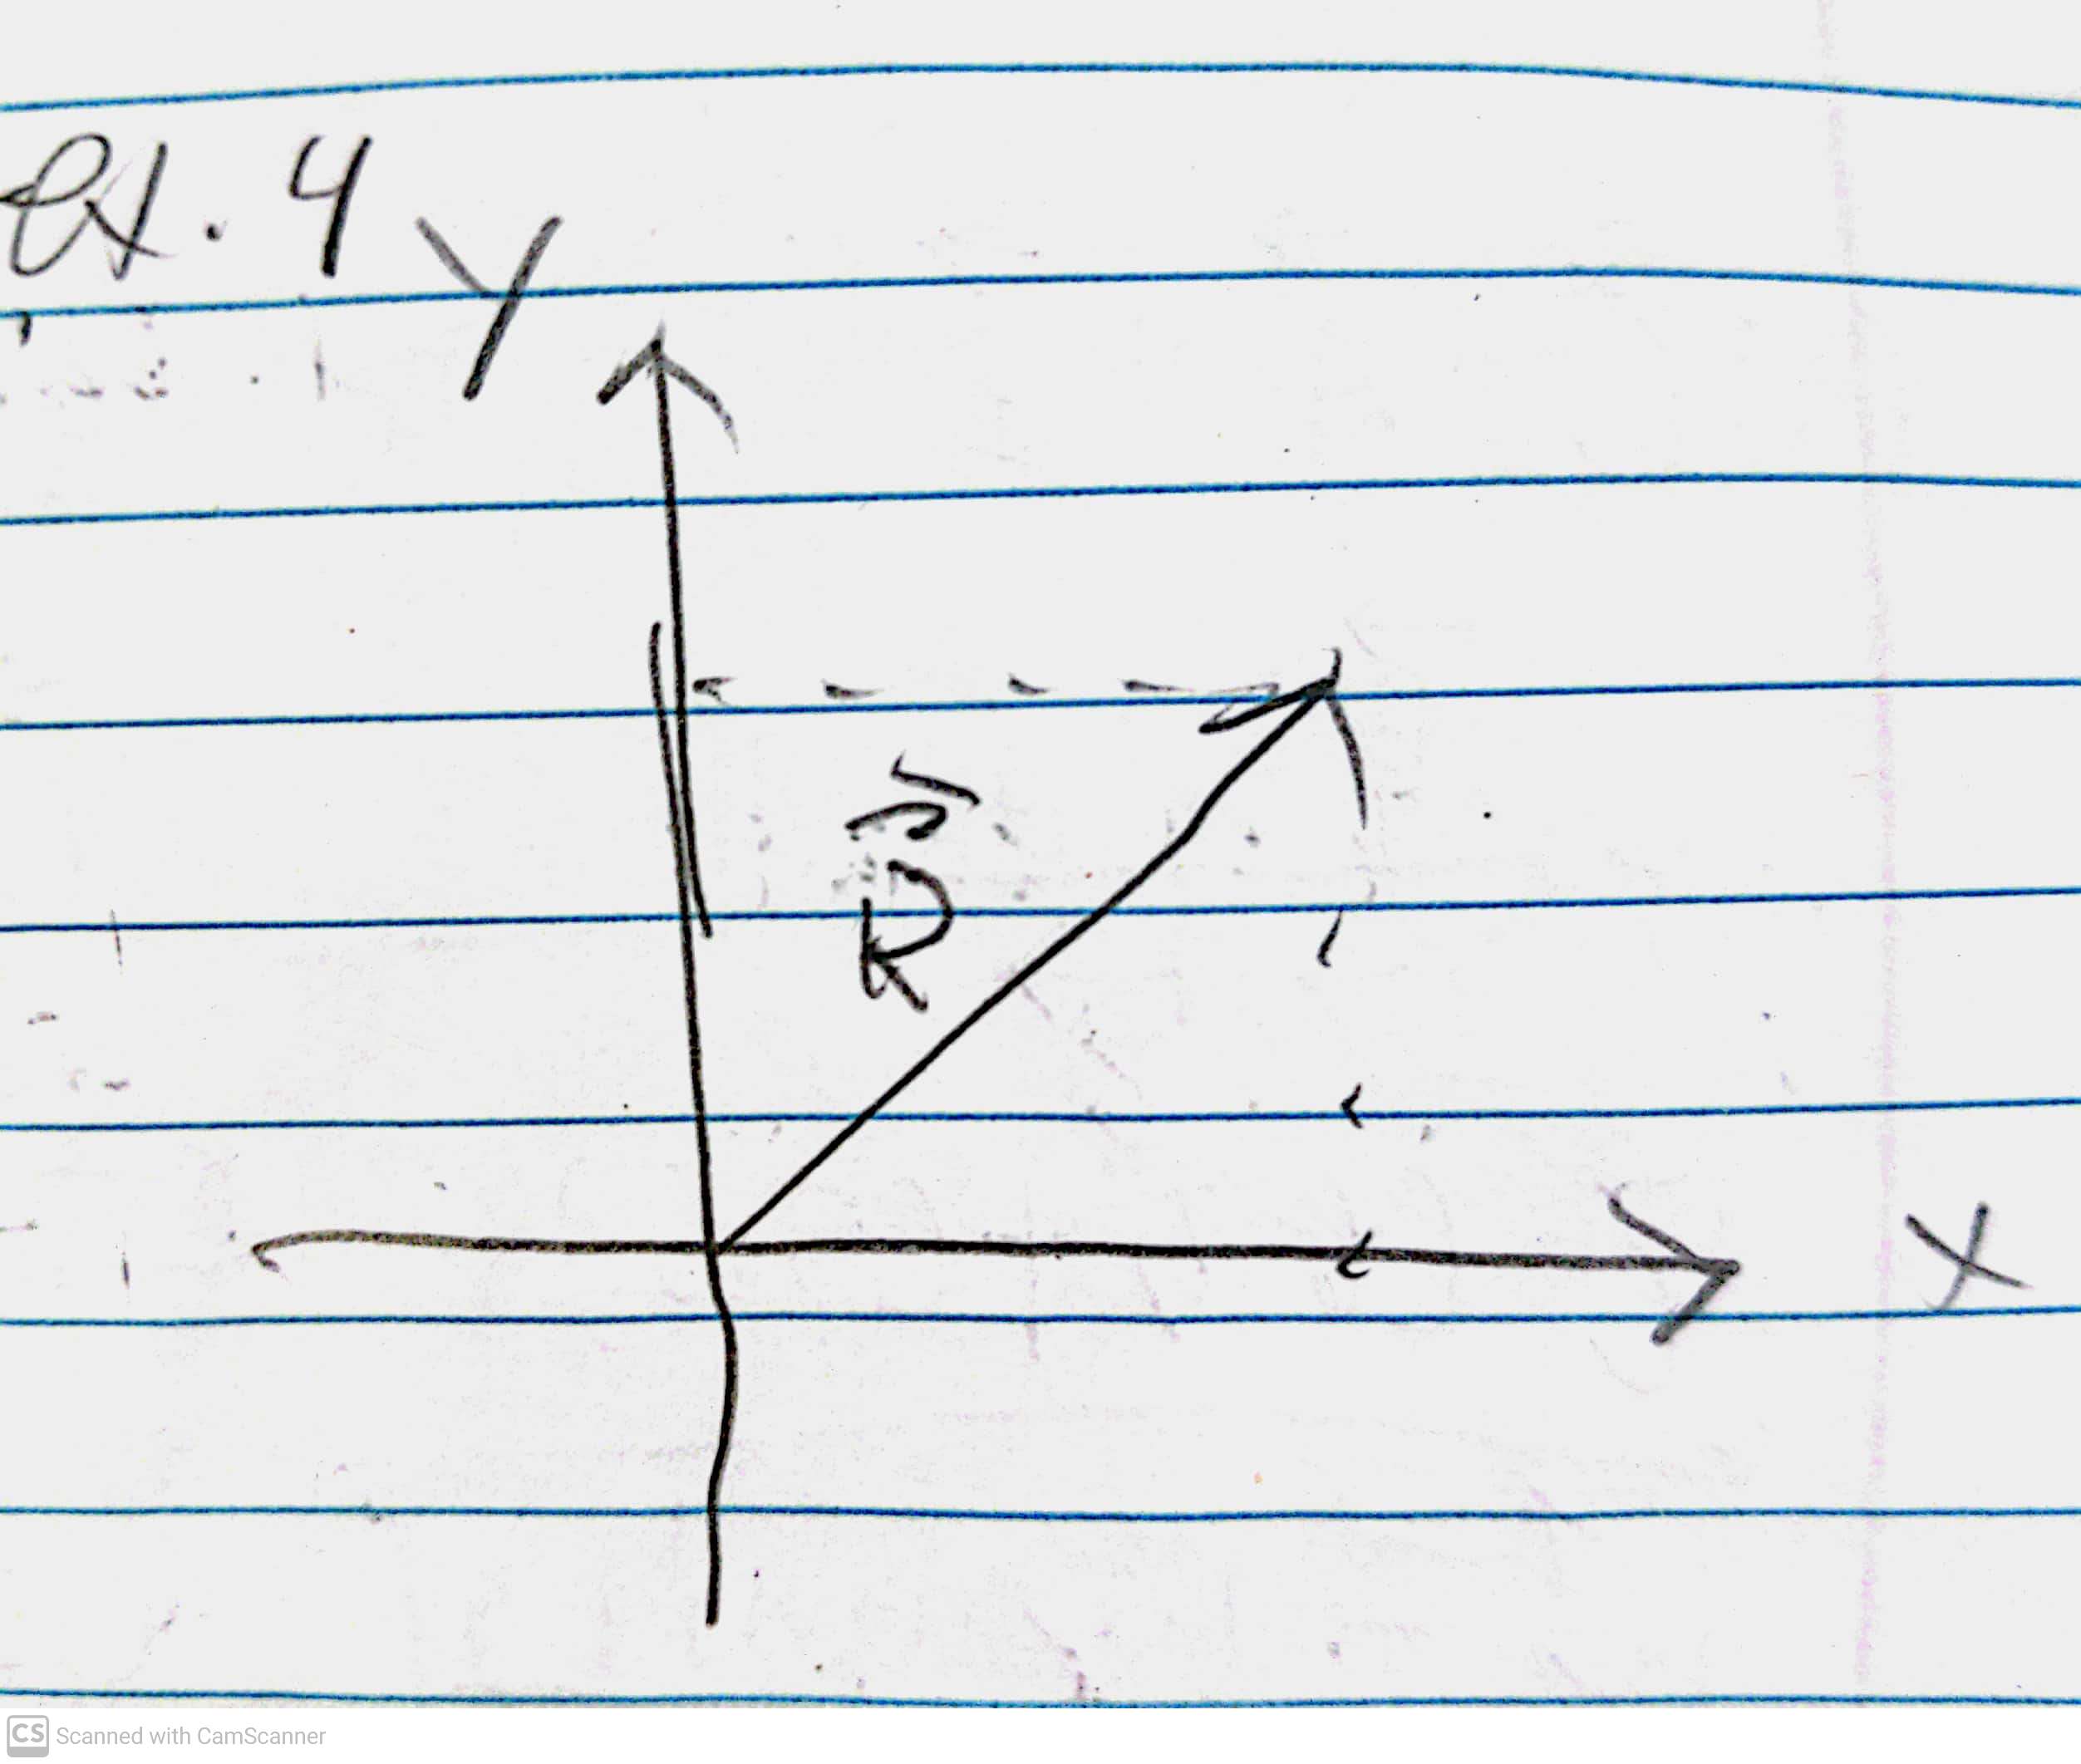 ex. 4
Y
R
X
CS Scanned with CamScanner